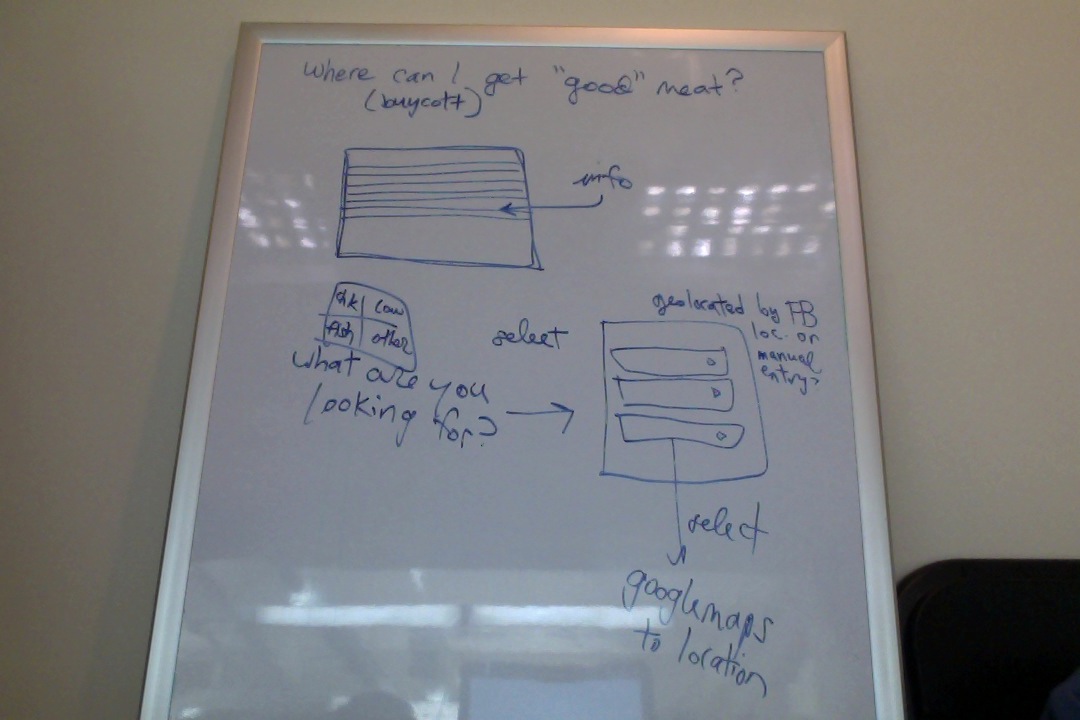 Where can I get "good" meat?
(buycott)
info
chk cow
fish other
select
What are you
looking for?
geolocated by FB
loc. or
manual
entry?
select
googlemaps
to location